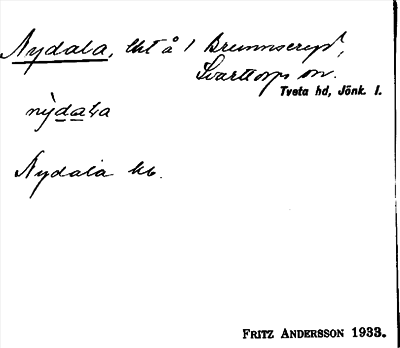 Nydala, lht å 1 Brunnseryd,
Svarttorps sn.
Tveta hd, Jönk. l.
nỳdala
Nydala kb.
FRITZ ANDERSSON 1933.